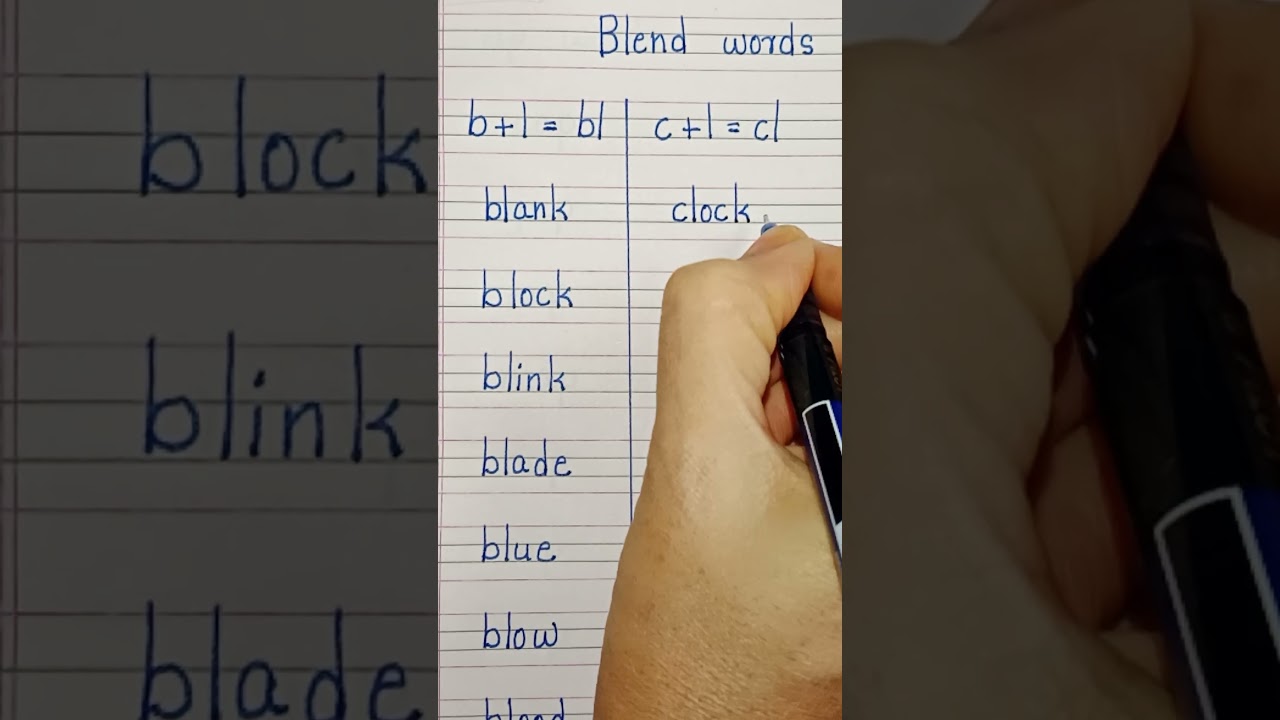 Blend words
b+l = bl c+l = cl
blank clock
block
blink
blade
blue
blow